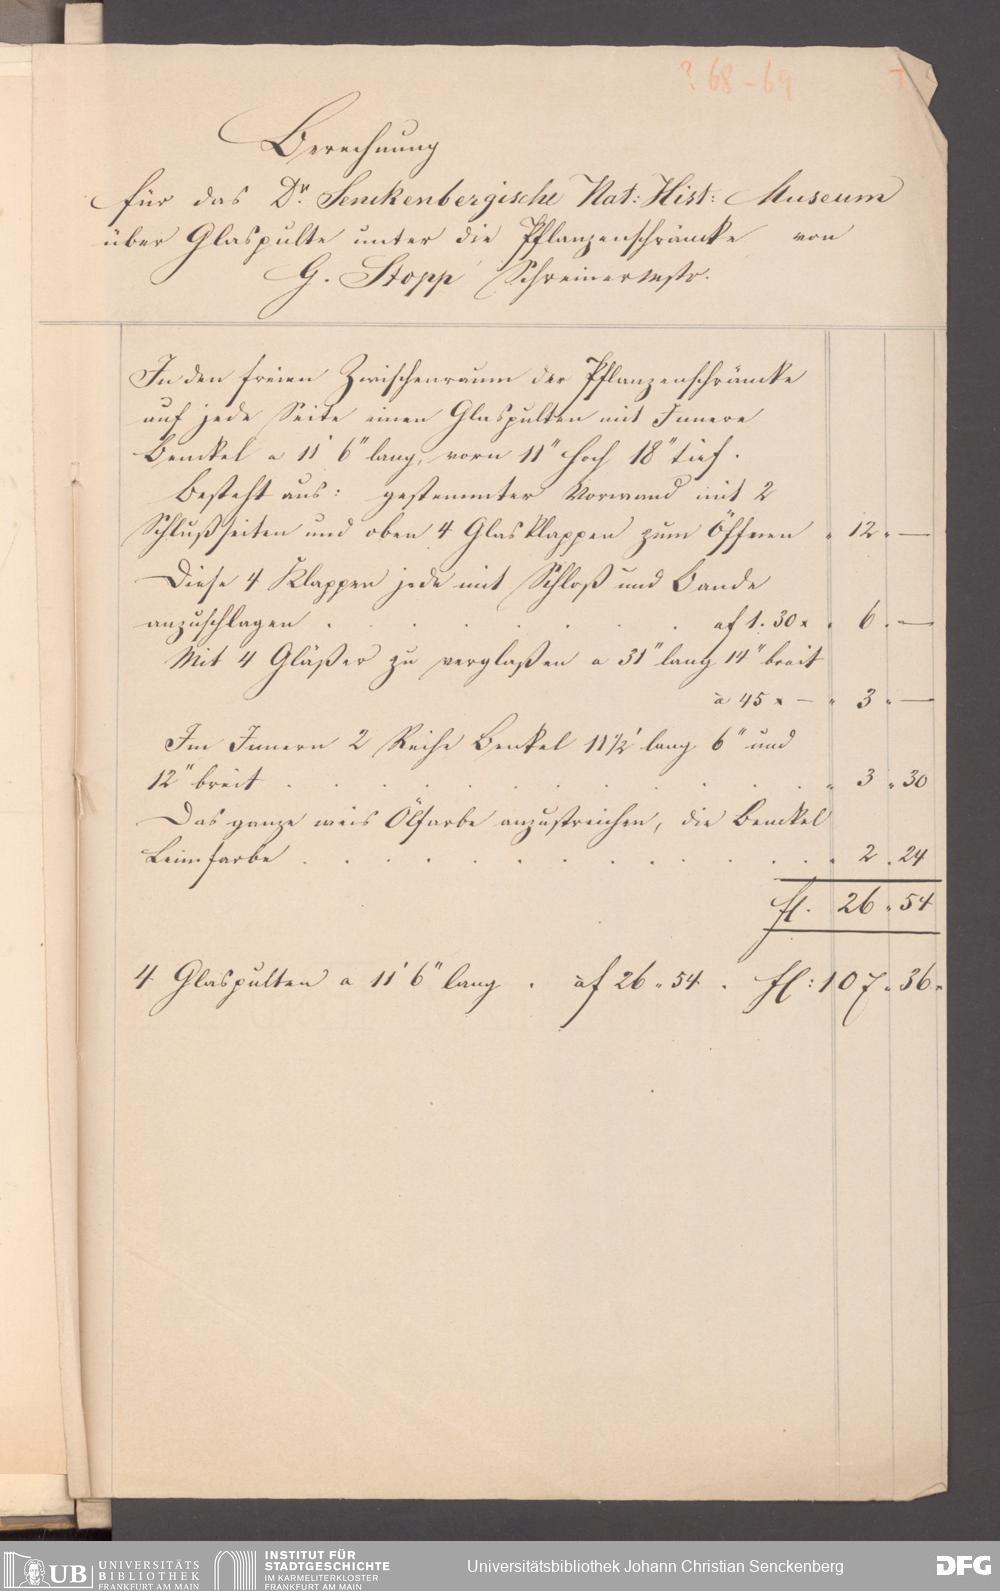 ? 68-69
Berechnung
für das Dr. Senckenbergische Nat: Hist: Museum
über Glaspulte unter die Pflanzenschräncke von
G. Stopp Schreinermstr.
In den freien Zwischenraum der Pflanzenschräncke
auf jede Seite einen Glaspulten mit Innere
Benckel a 11' 6" lang, vorn 11" hoch 18" tief.
Besteht aus: gestemmter Vorwand mit 2
Schlußseiten und oben 4 Glasklappen zum Öffnen " 12 " —
Diese 4 Klappen jede mit Schloß und Bande
anzuschlagen . . . . . . . . af 1. 30 x " 6 " —
Mit 4 Gläßer zu verglaßen a 31" lang 14" breit
a 45 x — " 3 " —
Im Innern 2 Reihe Benkel 11 1/2' lang 6" und
12" breit . . . . . . . . . . . . " 3 " 30
Das ganze weis Ölfarbe anzustreichen, die Benckel
Leimfarbe . . . . . . . . . . . . . " 2 . 24
fl. 26 " 54
4 Glaspulten a 11' 6" lang . af 26 " 54 . fl: 107 " 36 "
UB UNIVERSITÄTS
BIBLIOTHEK
FRANKFURT AM MAIN
INSTITUT FÜR
STADTGESCHICHTE
IM KARMELITERKLOSTER
FRANKFURT AM MAIN
Universitätsbibliothek Johann Christian Senckenberg
DFG